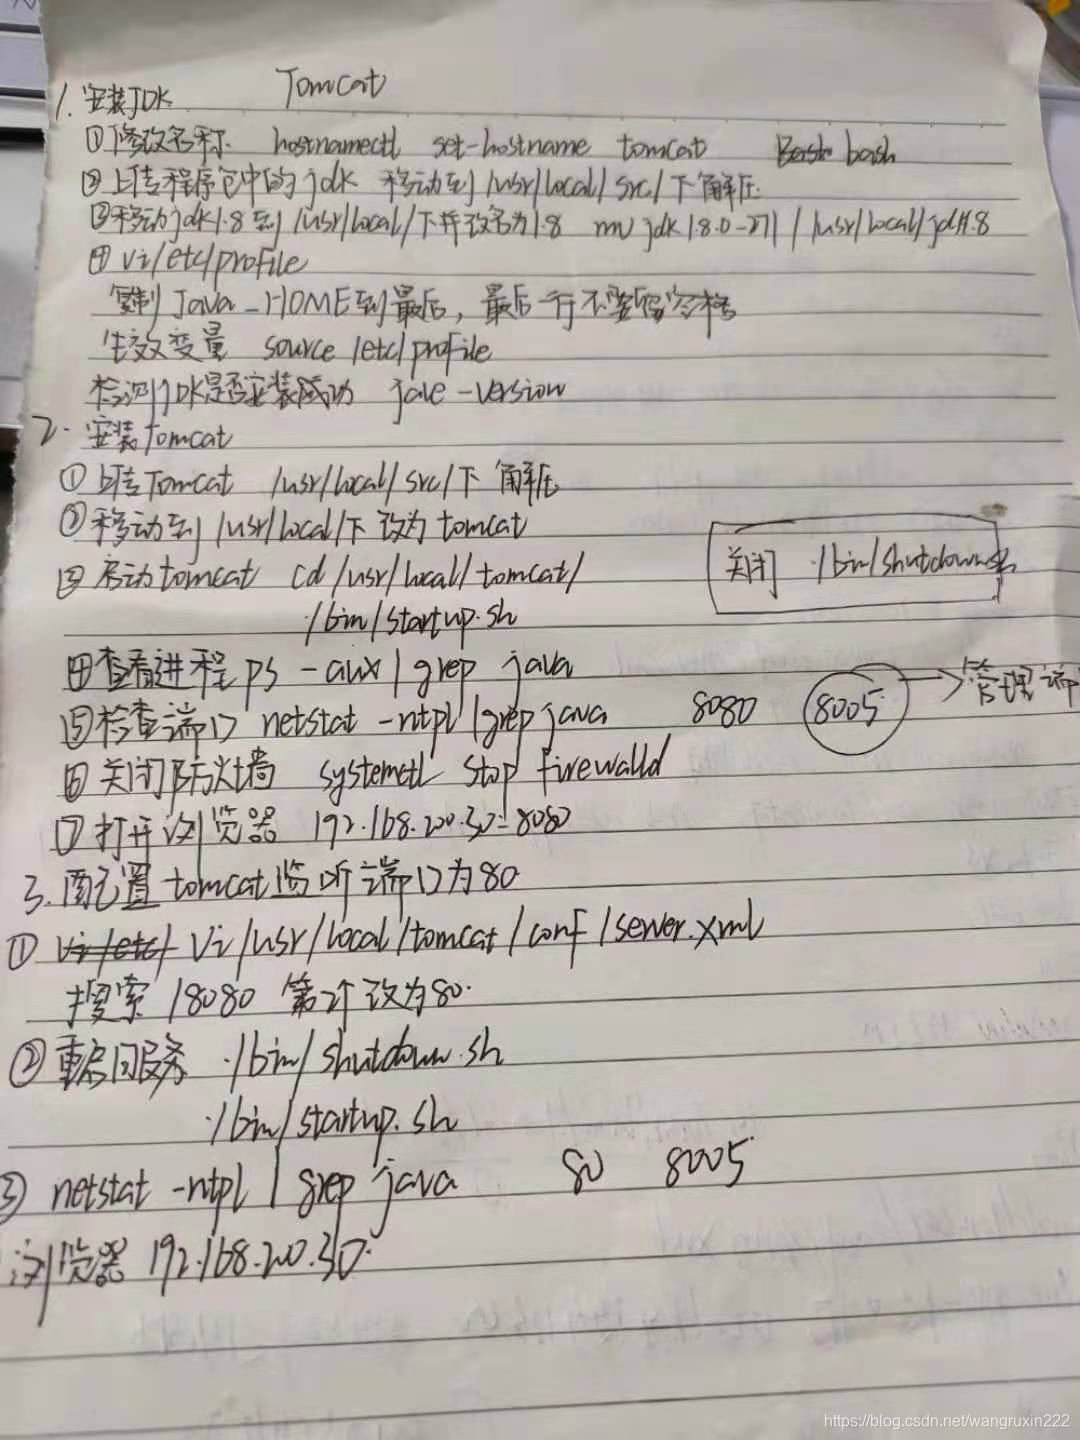 Tomcat
1. 安装JDK
①修改名称 hostnamectl set-hostname tomcat bash
②上传程序包中的jdk 移动到/usr/local/src/下解压
③移动jdk1.8到/usr/local/下并改名为1.8 mv jdk1.8.0-271/ /usr/local/jdk1.8
④vi/etc/profile
复制Java_HOME到最后，最后一行不要留空格
生效变量 source /etc/profile
检测JDK是否安装成功 jave -version
2. 安装Tomcat
①上传Tomcat /usr/local/src/下 解压
②移动到/usr/local/下 改为tomcat
③启动tomcat cd /usr/local/tomcat/
./bin/startup.sh
关闭 ./bin/shutdown.sh
④查看进程 ps -aux | grep java
⑤检查端口 netstat -ntpl |grep java 8080 8005 → 管理端
⑥关闭防火墙 systemctl stop firewalld
⑦打开浏览器 192.168.200.30:8080
3. 配置tomcat监听端口为80
① vi/etc/ Vi/usr/local/tomcat/conf/server.xml
搜索 /8080 第2个改为80.
②重启服务 ./bin/shutdown.sh
./bin/startup.sh
③ netstat -ntpl | grep java 80 8005
浏览器 192.168.20.30.
https://blog.csdn.net/wangruxin222